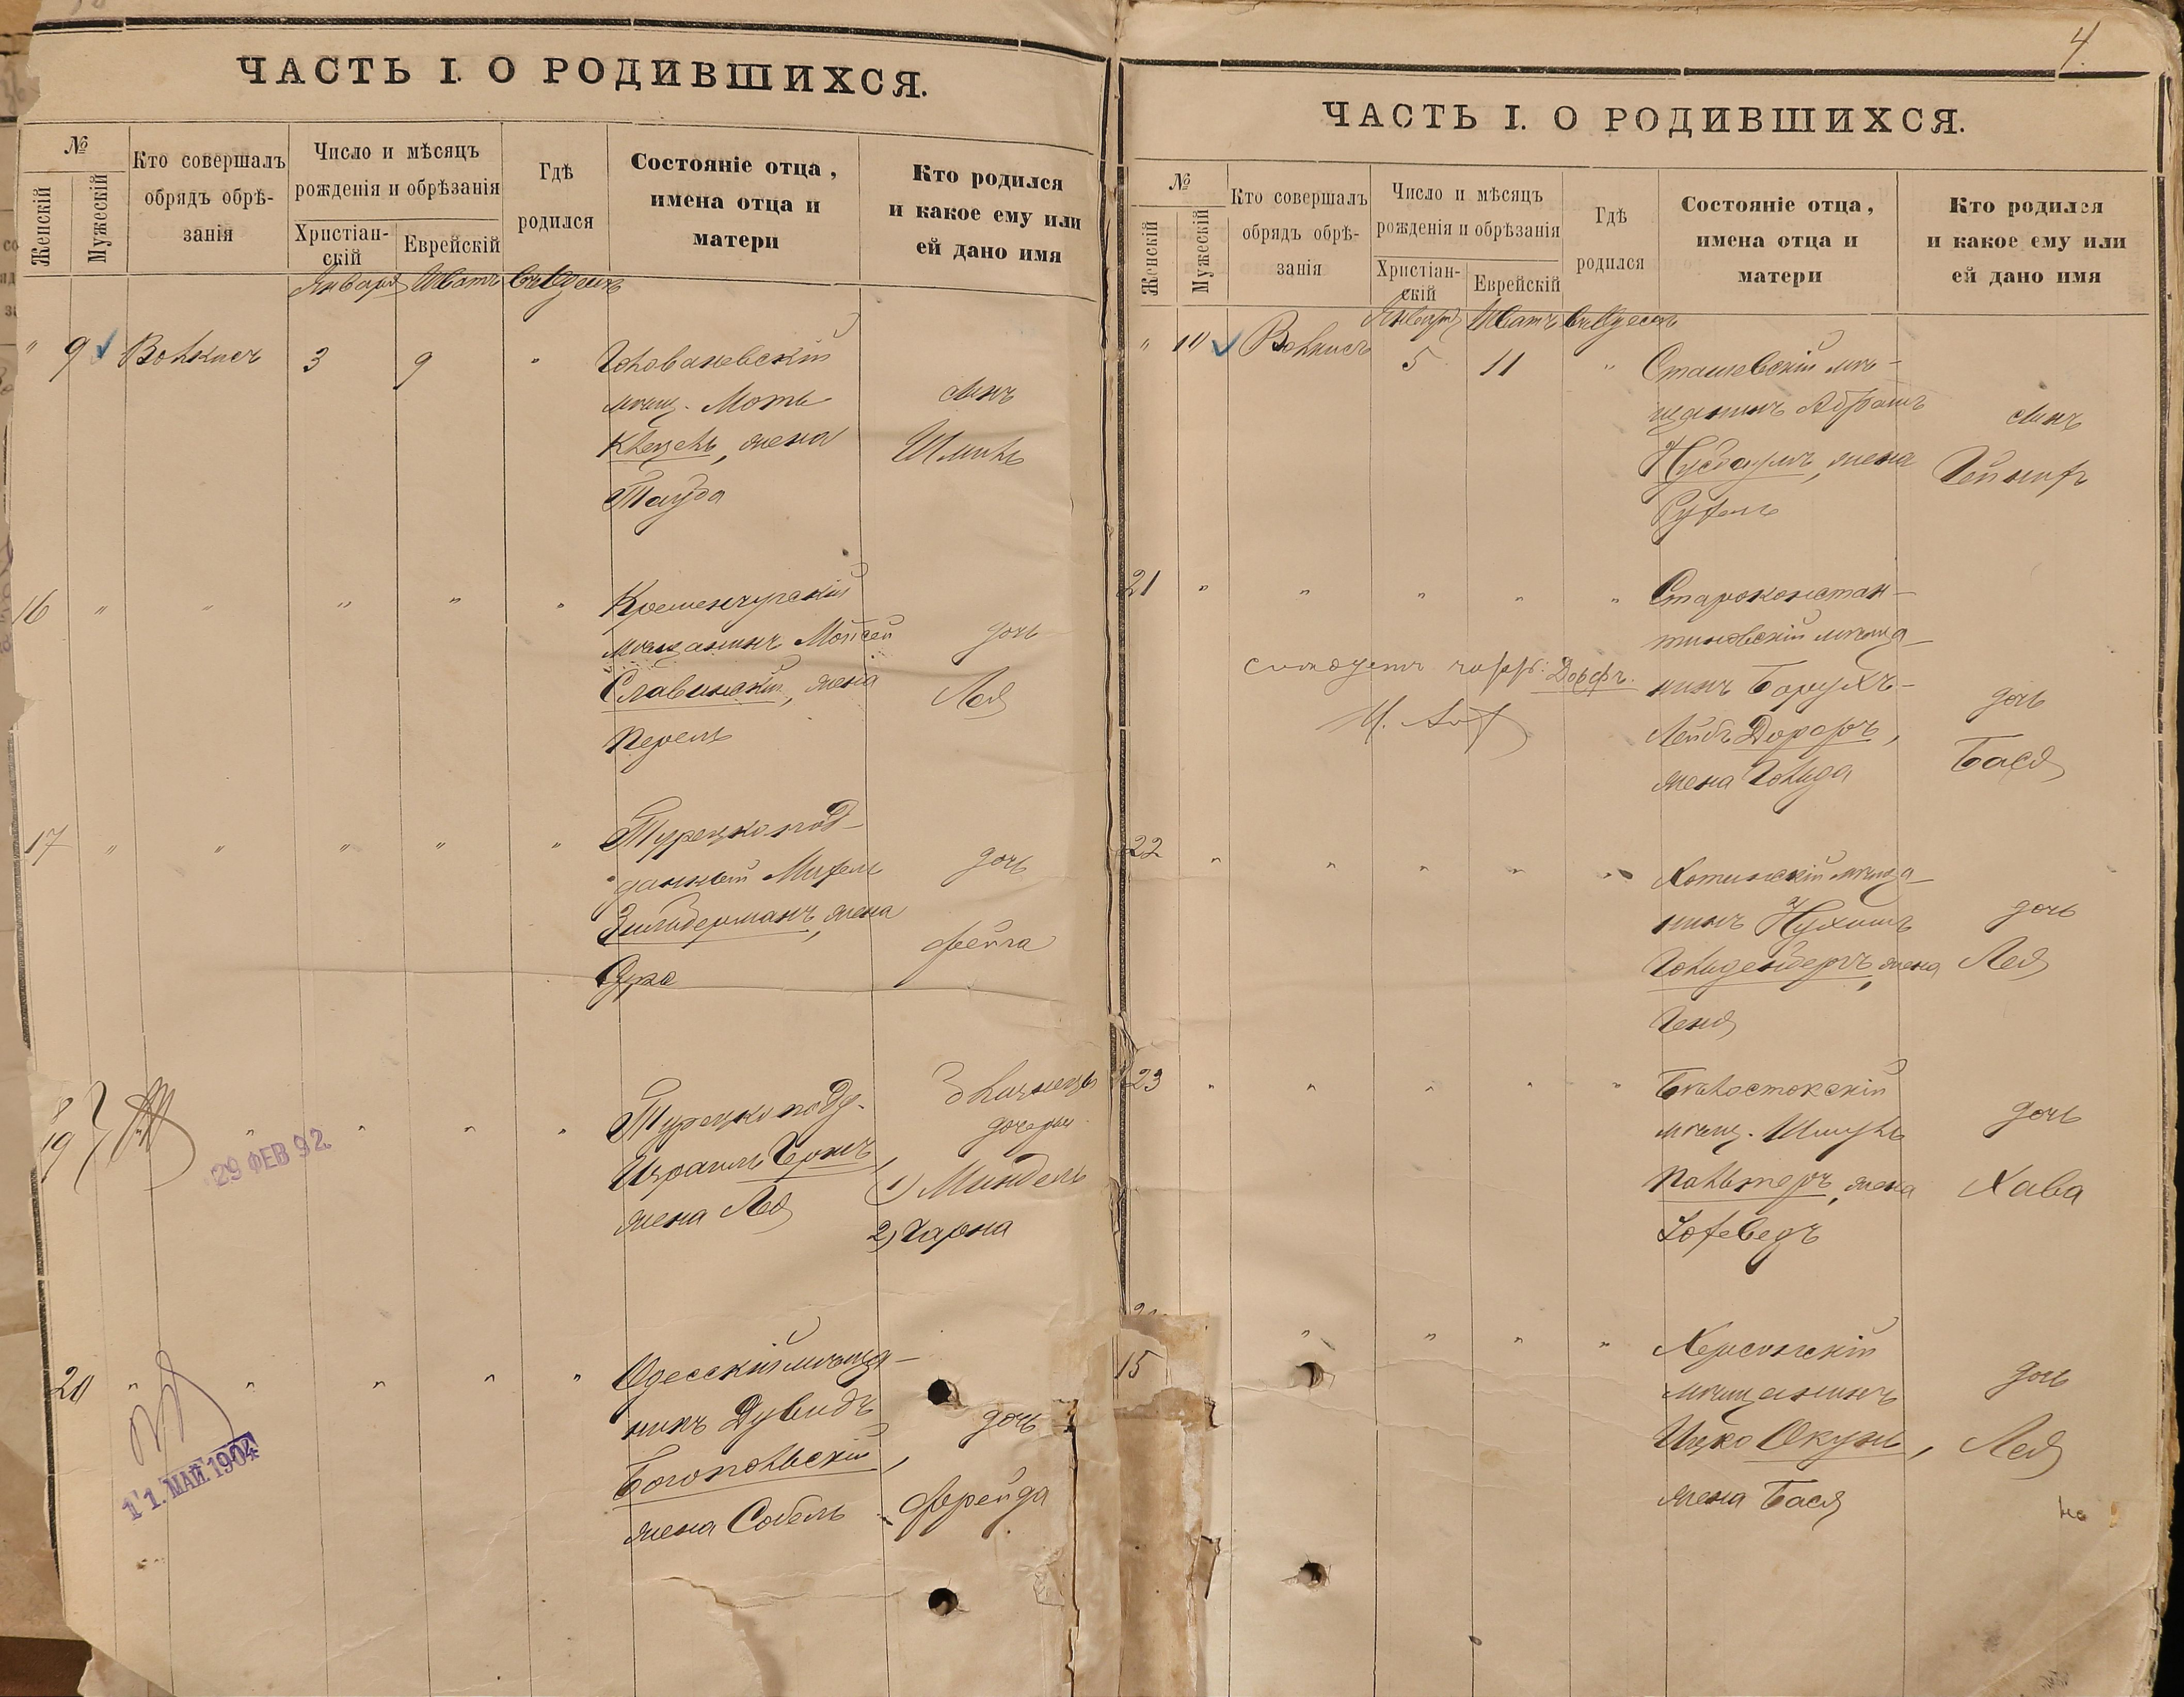 ЧАСТЬ I. О РОДИВШИХСЯ.
№
Женскій
Мужескій
Кто совершалъ
обрядъ обрѣ-
занія
Число и мѣсяцъ
рожденія и обрѣзанія
Христіан-
скій
Еврейскій
Гдѣ
родился
Состояніе отца,
имена отца и
матери
Кто родился
и какое ему или
ей дано имя
Января Шватъ въ Одессѣ
" 9 Волкисъ 3 9 "
Головановскій
мѣщ. Моть
Клецель, жена
Тауба
сынъ
Шмиль
16 " " " " "
Кременчугскій
мѣщанинъ Мойсей
Славинскій, жена
Перель
дочь
Лея
17 " " " " "
Турецкопод-
данный Михель
Зильберманъ, жена
Эрка
дочь
Фейга
19
" " " "
29 ФЕВ 92.
Турецкоподд.
Израиль Гронъ,
жена Лея
Близнецы
дочери
1) Миндель
2) Чарна
20 " " " " "
11. МАЙ. 1904
Одесскій мѣща-
нинъ Дувидъ
Богопольскій,
жена Собель
дочь
Фрейда
4.
ЧАСТЬ I. О РОДИВШИХСЯ.
№
Женскій
Мужескій
Кто совершалъ
обрядъ обрѣ-
занія
Число и мѣсяцъ
рожденія и обрѣзанія
Христіан-
скій
Еврейскій
Гдѣ
родился
Состояніе отца,
имена отца и
матери
Кто родился
и какое ему или
ей дано имя
Январ Шватъ въ Одессѣ
" 10 Волкисъ 5 11 "
Сташевскій мѣ-
щанинъ Абрамъ
Нусбаумъ, жена
Рухель
сынъ
Гейнихъ
21 " " " " "
Староконстан-
тиновскій мѣща-
нинъ Борухъ-
Лейбъ Дорфъ,
жена Голда
дочь
Бася
слѣдуетъ Дорфъ.
22 " " " " "
Хотинскій мѣща-
нинъ Нухимъ
Гольденбергъ, жена
Геня
дочь
Лея
23 " " " " "
Бѣлостокскій
мѣщ. Шмуль
Пальтеръ, жена
Іохеведъ
дочь
Хава
15 " " " "
Херсонскій
мѣщанинъ
Ицко Окунь,
жена Бася
дочь
Лея